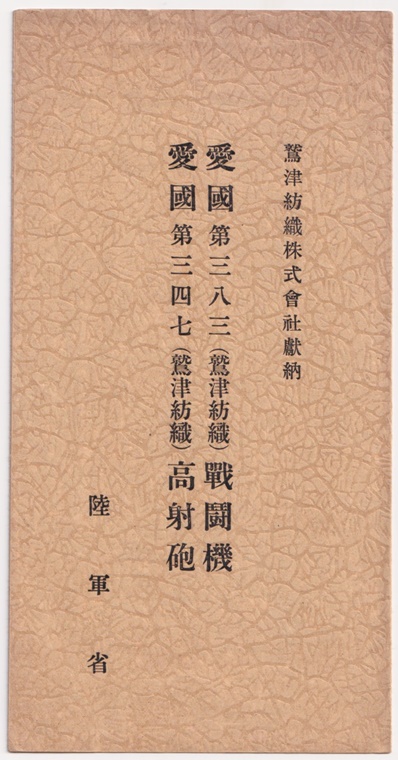 鷲津紡織株式會社獻納
愛國第三八三（鷲津紡織）戰鬪機
愛國第三四七（鷲津紡織）高射砲
陸軍省